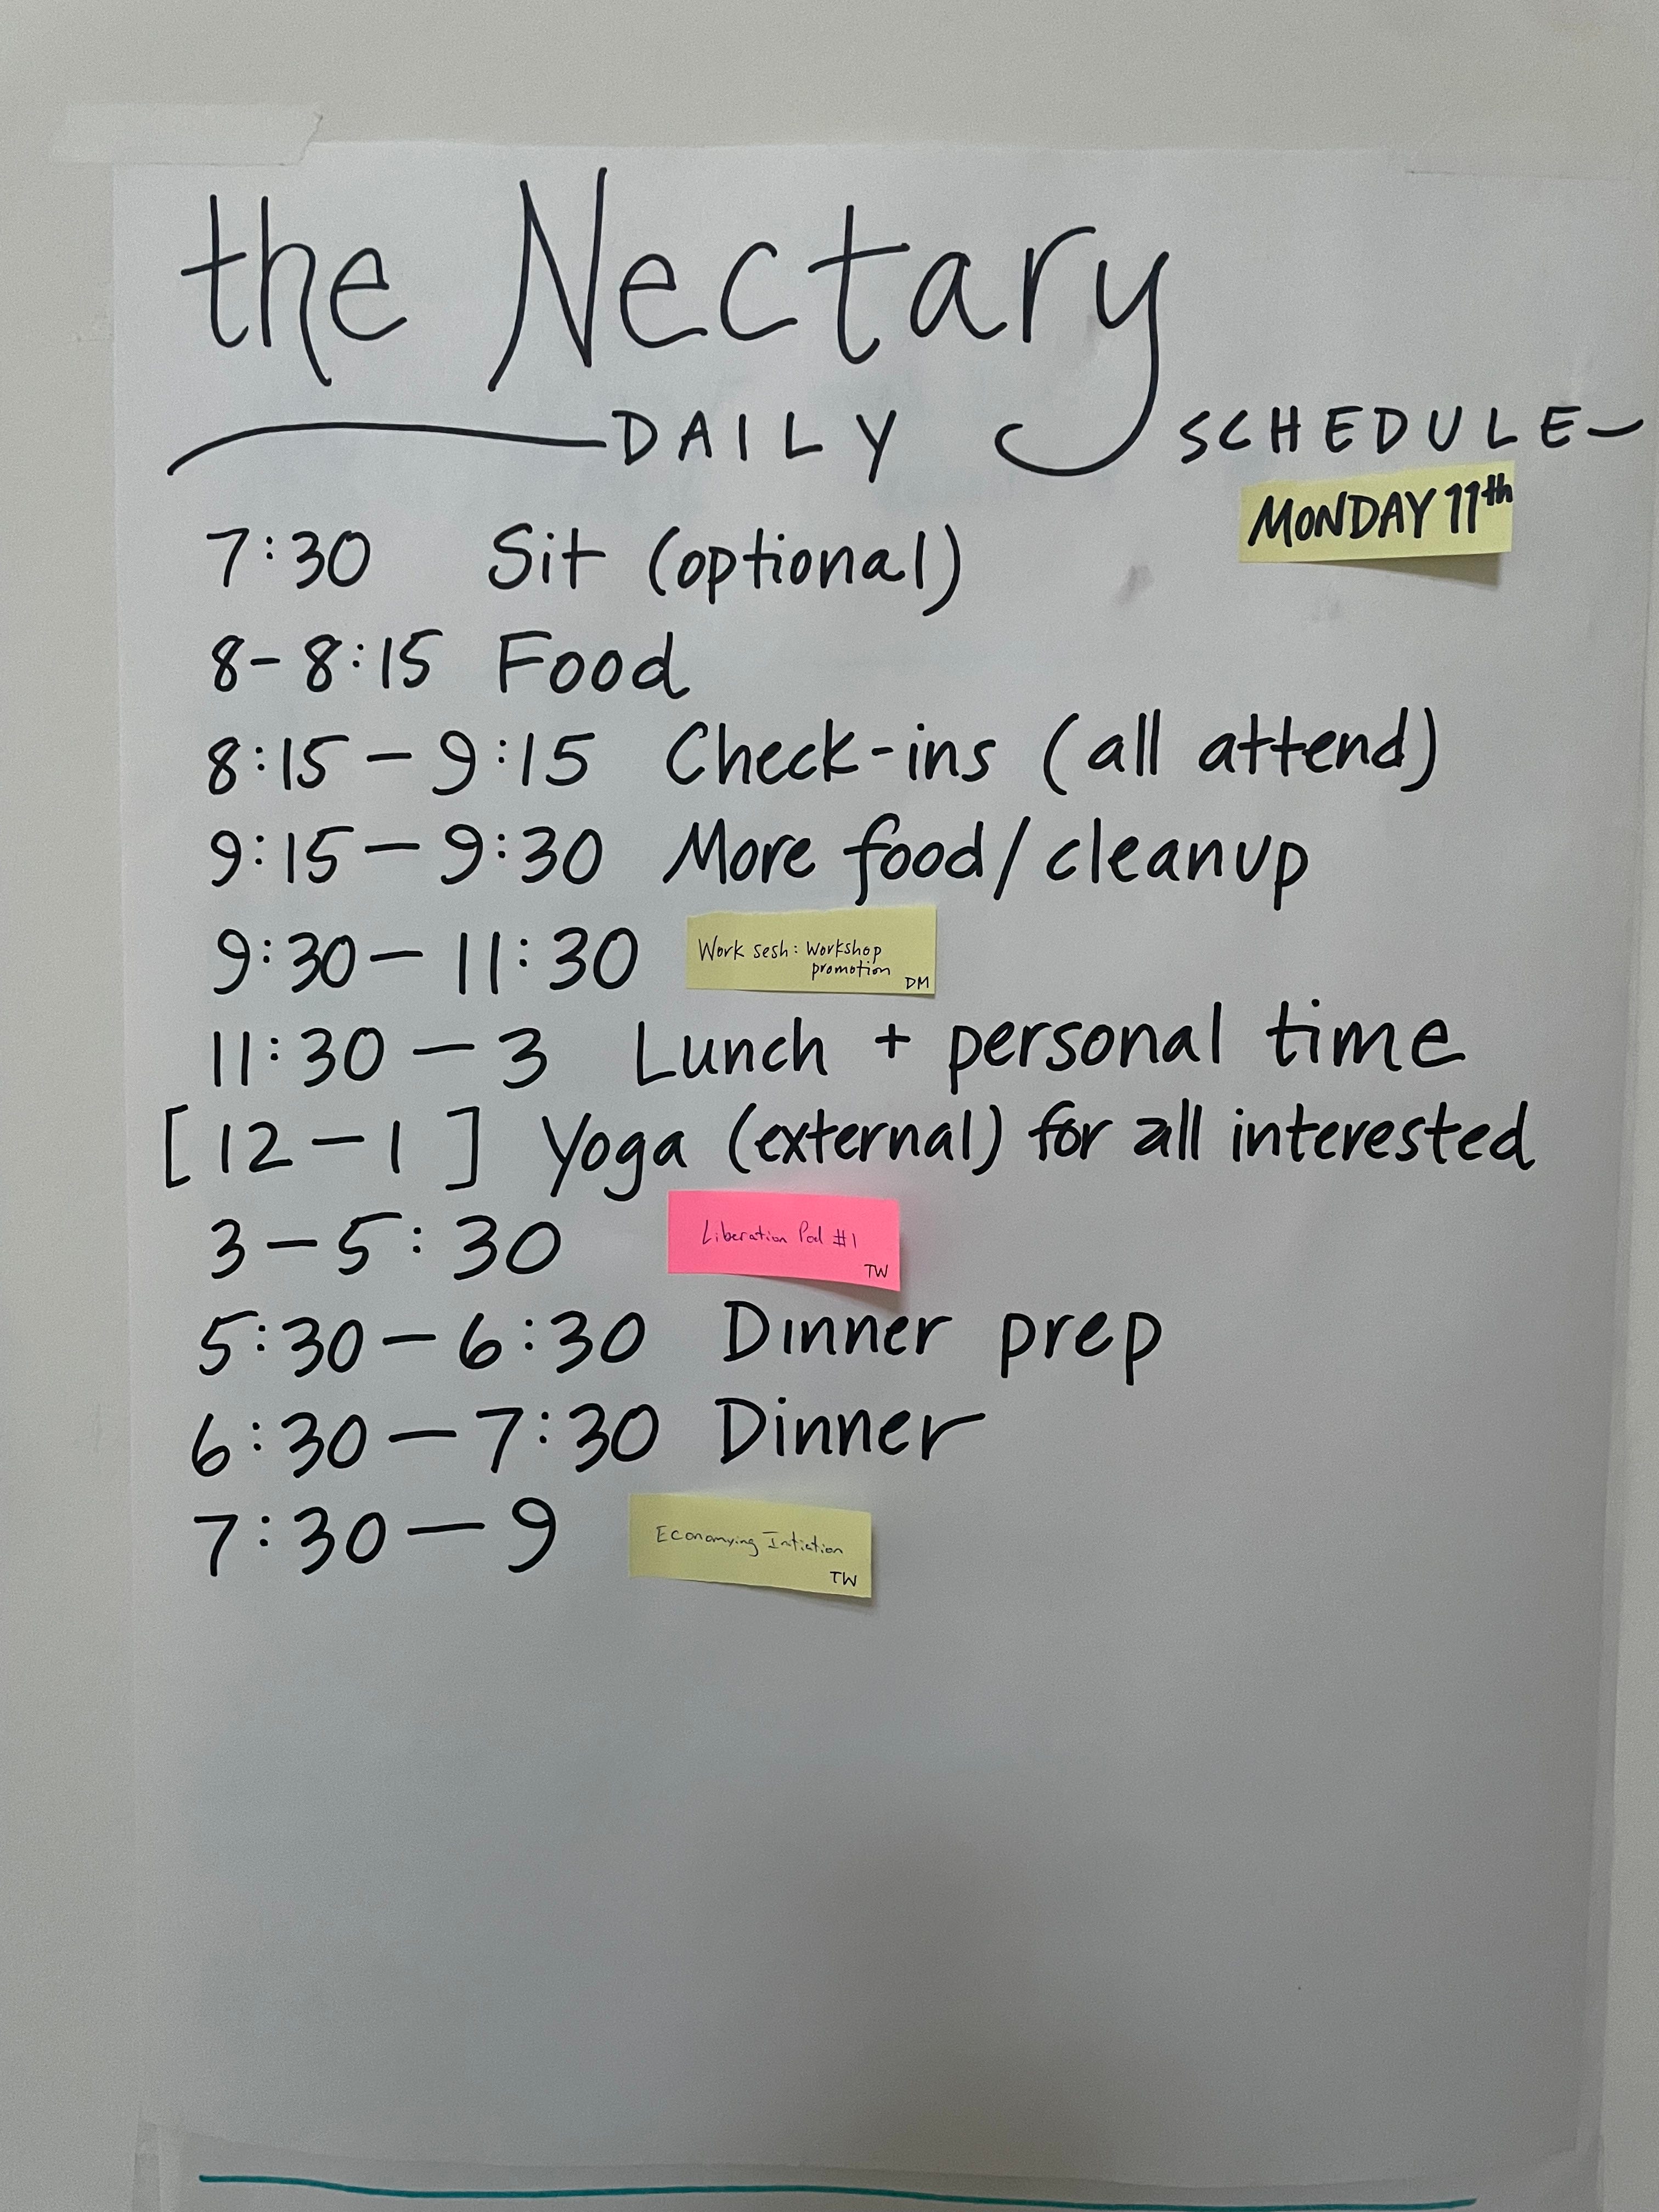 the Nectary
DAILY SCHEDULE
MONDAY 11th
7:30 Sit (optional)
8-8:15 Food
8:15-9:15 Check-ins (all attend)
9:15-9:30 More food/cleanup
9:30-11:30 Work sesh: Workshop
promotion
DM
11:30-3 Lunch + personal time
[12-1] Yoga (external) for all interested
3-5:30 Liberation Pod #1
TW
5:30-6:30 Dinner prep
6:30-7:30 Dinner
7:30-9 Economying Intiation
TW